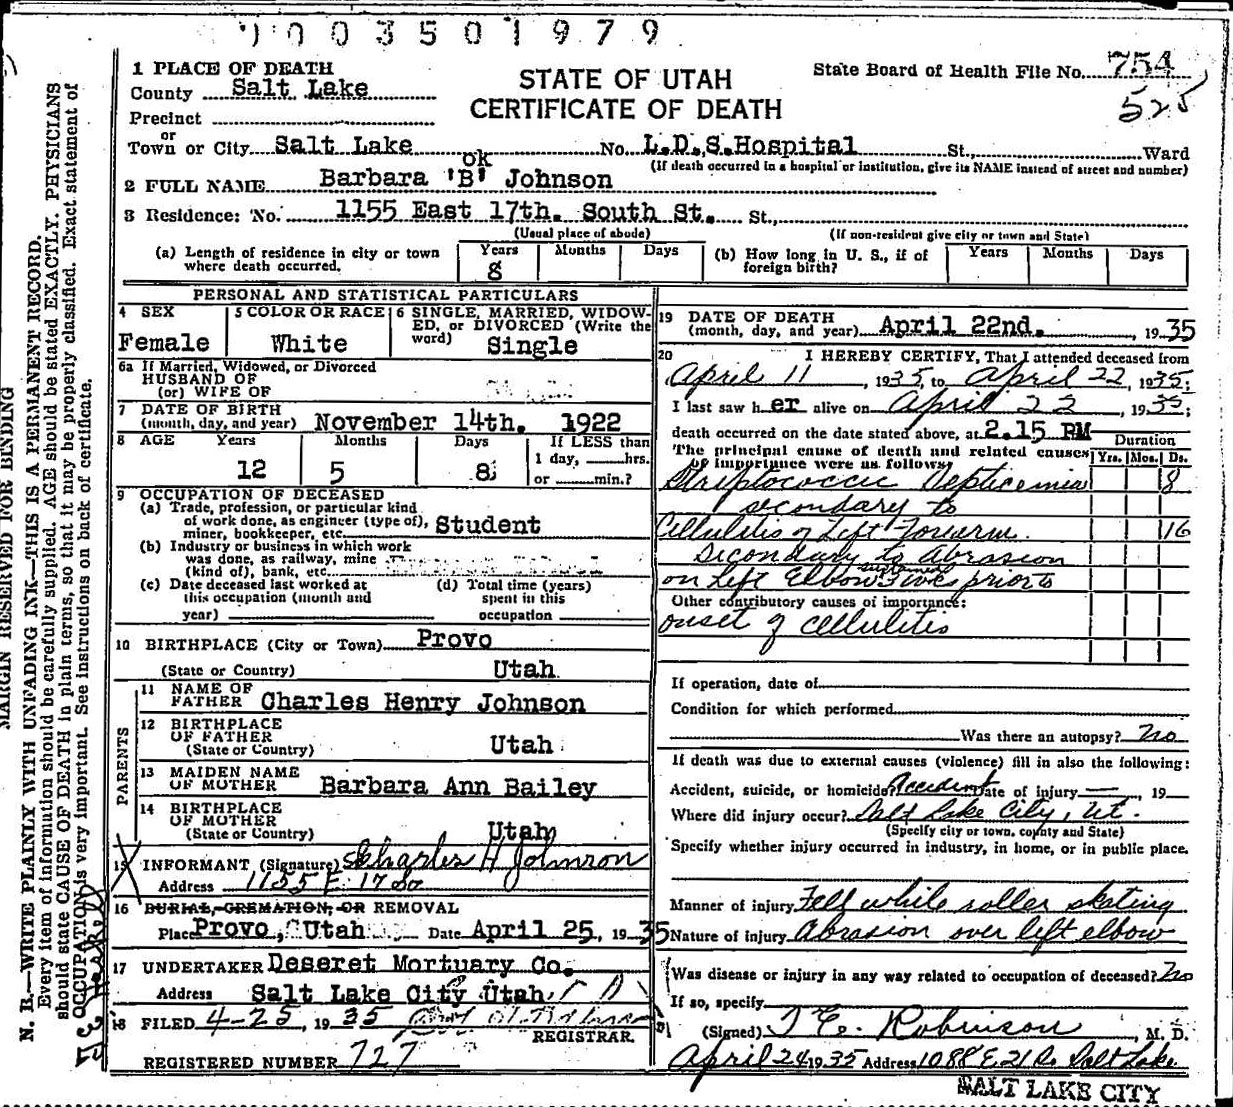 1003501979
1 PLACE OF DEATH
County Salt Lake
Precinct
or
Town or City Salt Lake No. L.D.S. Hospital St., Ward
STATE OF UTAH
CERTIFICATE OF DEATH
State Board of Health File No. 754
525
(If death occurred in a hospital or institution, give its NAME instead of street and number)
ok
2 FULL NAME Barbara 'B' Johnson
3 Residence: No. 1155 East 17th. South St. St.,
(Usual place of abode) (If non-resident give city or town and State)
(a) Length of residence in city or town where death occurred. Years 8 Months Days
(b) How long in U. S., if of foreign birth? Years Months Days
PERSONAL AND STATISTICAL PARTICULARS
4 SEX Female
5 COLOR OR RACE White
6 SINGLE, MARRIED, WIDOWED, or DIVORCED (Write the word) Single
6a If Married, Widowed, or Divorced
HUSBAND OF
(or) WIFE OF
7 DATE OF BIRTH
(month, day, and year) November 14th. 1922
8 AGE Years 12 Months 5 Days 8 If LESS than 1 day, hrs. or min.?
9 OCCUPATION OF DECEASED
(a) Trade, profession, or particular kind of work done, as engineer (type of), miner, bookkeeper, etc. Student
(b) Industry or business in which work was done, as railway, mine (kind of), bank, etc.
(c) Date deceased last worked at this occupation (month and year)
(d) Total time (years) spent in this occupation
10 BIRTHPLACE (City or Town) Provo
(State or Country) Utah
PARENTS
11 NAME OF FATHER Charles Henry Johnson
12 BIRTHPLACE OF FATHER
(State or Country) Utah
13 MAIDEN NAME OF MOTHER Barbara Ann Bailey
14 BIRTHPLACE OF MOTHER
(State or Country) Utah
15 INFORMANT (Signature) Charles H Johnson
Address 1155 E 17 So
16 BURIAL, CREMATION, OR REMOVAL
Place Provo, Utah Date April 25, 1935
17 UNDERTAKER Deseret Mortuary Co.
Address Salt Lake City Utah
18 FILED 4-25, 1935
REGISTRAR
REGISTERED NUMBER 727
19 DATE OF DEATH
(month, day, and year) April 22nd., 1935
20 I HEREBY CERTIFY, That I attended deceased from
April 11, 1935, to April 22, 1935;
I last saw her alive on April 22, 1935;
death occurred on the date stated above, at 2.15 PM
The principal cause of death and related causes of importance were as follows:
Duration
Yrs. Mos. Ds.
Streptococcic Septicemia 8
secondary to
Cellulitis of Left Forearm 16
Secondary to Abrasion
on Left Elbow sustained prior to
Other contributory causes of importance:
onset of Cellulitis
If operation, date of
Condition for which performed
Was there an autopsy? No
If death was due to external causes (violence) fill in also the following:
Accident, suicide, or homicide? Accident Date of injury —, 19
Where did injury occur? Salt Lake City, Ut.
(Specify city or town, county and State)
Specify whether injury occurred in industry, in home, or in public place.
Manner of injury Fell while roller skating
Nature of injury Abrasion over left elbow
Was disease or injury in any way related to occupation of deceased? No
If so, specify
(Signed) T E. Robinson, M. D.
April 24 1935 Address 1088 E 21 So Salt Lake
SALT LAKE CITY
MARGIN RESERVED FOR BINDING
N. B.—WRITE PLAINLY WITH UNFADING INK—THIS IS A PERMANENT RECORD.
Every item of information should be carefully supplied. AGE should be stated EXACTLY. PHYSICIANS
should state CAUSE OF DEATH in plain terms, so that it may be properly classified. Exact statement of
OCCUPATION is very important. See instructions on back of certificate.